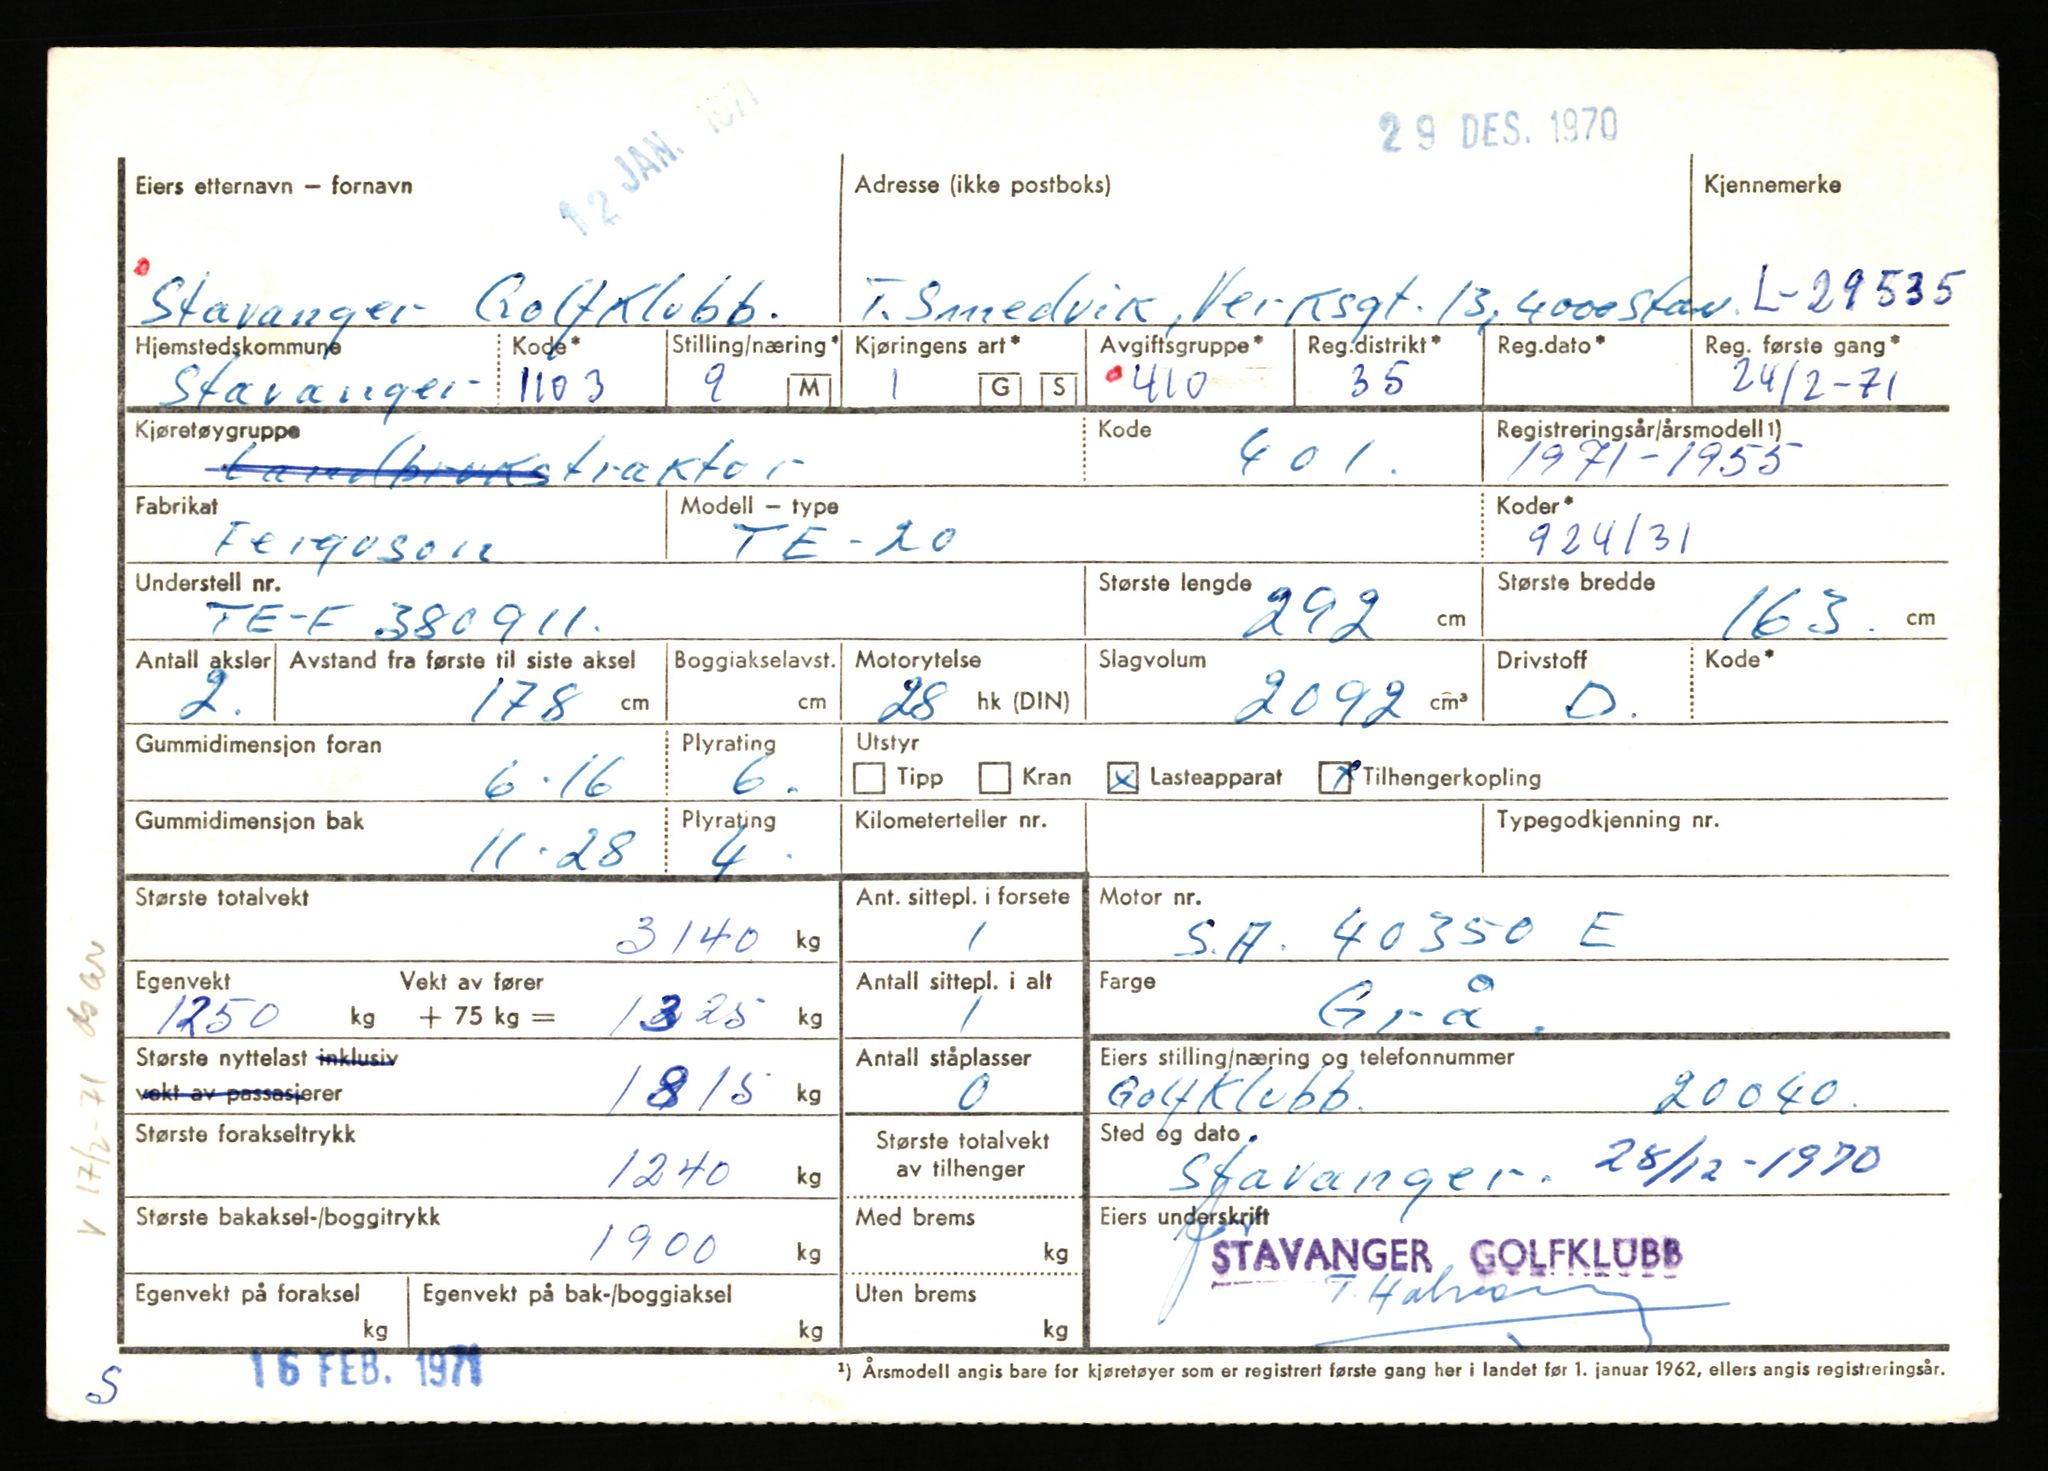 12 JAN. 1971
29 DES. 1970
Eiers etternavn – fornavn Adresse (ikke postboks) Kjennemerke
Stavanger Golfklubb. T. Smedvik, Verksgt. 13, 4000 Stav. L-29535
Hjemstedskommune Kode* Stilling/næring* Kjøringens art* Avgiftsgruppe* Reg.distrikt* Reg.dato* Reg. første gang*
Stavanger 1103 9 M 1 G S 410 35 24/2-71
Kjøretøygruppe Kode Registreringsår/årsmodell 1)
Landbrukstraktor 401. 1971-1955
Fabrikat Modell – type Koder*
Ferguson TE-20 924/31
Understell nr. Største lengde Største bredde
TE-F 380911. 292 cm 163. cm
Antall aksler Avstand fra første til siste aksel Boggiakselavst. Motorytelse Slagvolum Drivstoff Kode*
2. 178 cm cm 28 hk (DIN) 2092 cm³ D.
Gummidimensjon foran Plyrating Utstyr
6-16 6. Tipp Kran x Lasteapparat x Tilhengerkopling
Gummidimensjon bak Plyrating Kilometerteller nr. Typegodkjenning nr.
11-28 4.
Største totalvekt Ant. sittepl. i forsete Motor nr.
3140 kg 1 S.A. 40350 E
Egenvekt Vekt av fører Antall sittepl. i alt Farge
1250 kg + 75 kg = 1325 kg 1 Grå.
Største nyttelast inklusiv Antall ståplasser Eiers stilling/næring og telefonnummer
vekt av passasjerer 1815 kg 0 Golfklubb. 20040.
Største forakseltrykk Største totalvekt av tilhenger Sted og dato
1240 kg Stavanger. 28/12-1970
Største bakaksel-/boggitrykk Med brems Eiers underskrift
1900 kg kg for STAVANGER GOLFKLUBB
Egenvekt på foraksel Egenvekt på bak-/boggiaksel Uten brems
kg kg kg
16 FEB. 1971
¹) Årsmodell angis bare for kjøretøyer som er registrert første gang her i landet før 1. januar 1962, ellers angis registreringsår.
S
V 17/2-71